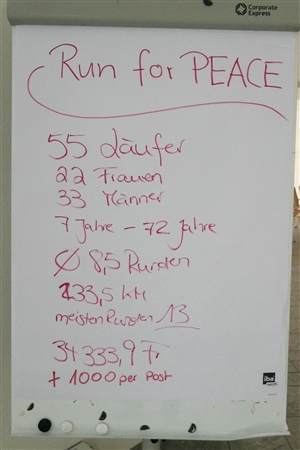 Corporate
Express
Run for PEACE
55 Läufer
22 Frauen
33 Männer
7 Jahre - 72 Jahre
Ø 8,5 Runden
233,5 km
meisten Runden 13
34 333,9 Fr
+ 1000 per Post
iba